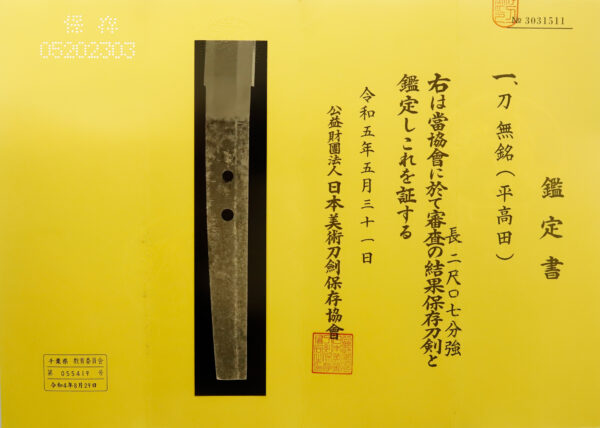 鑑定書
一、刀 無銘(平高田)
長 二尺〇七分強
右は當協會に於て審査の結果保存刀剣と
鑑定しこれを証する
令和五年五月三十一日
公益財團法人 日本美術刀劍保存協會
№ 3031511
保存
05202303
千葉県 教育委員会
第 055419 号
令和4年8月29日